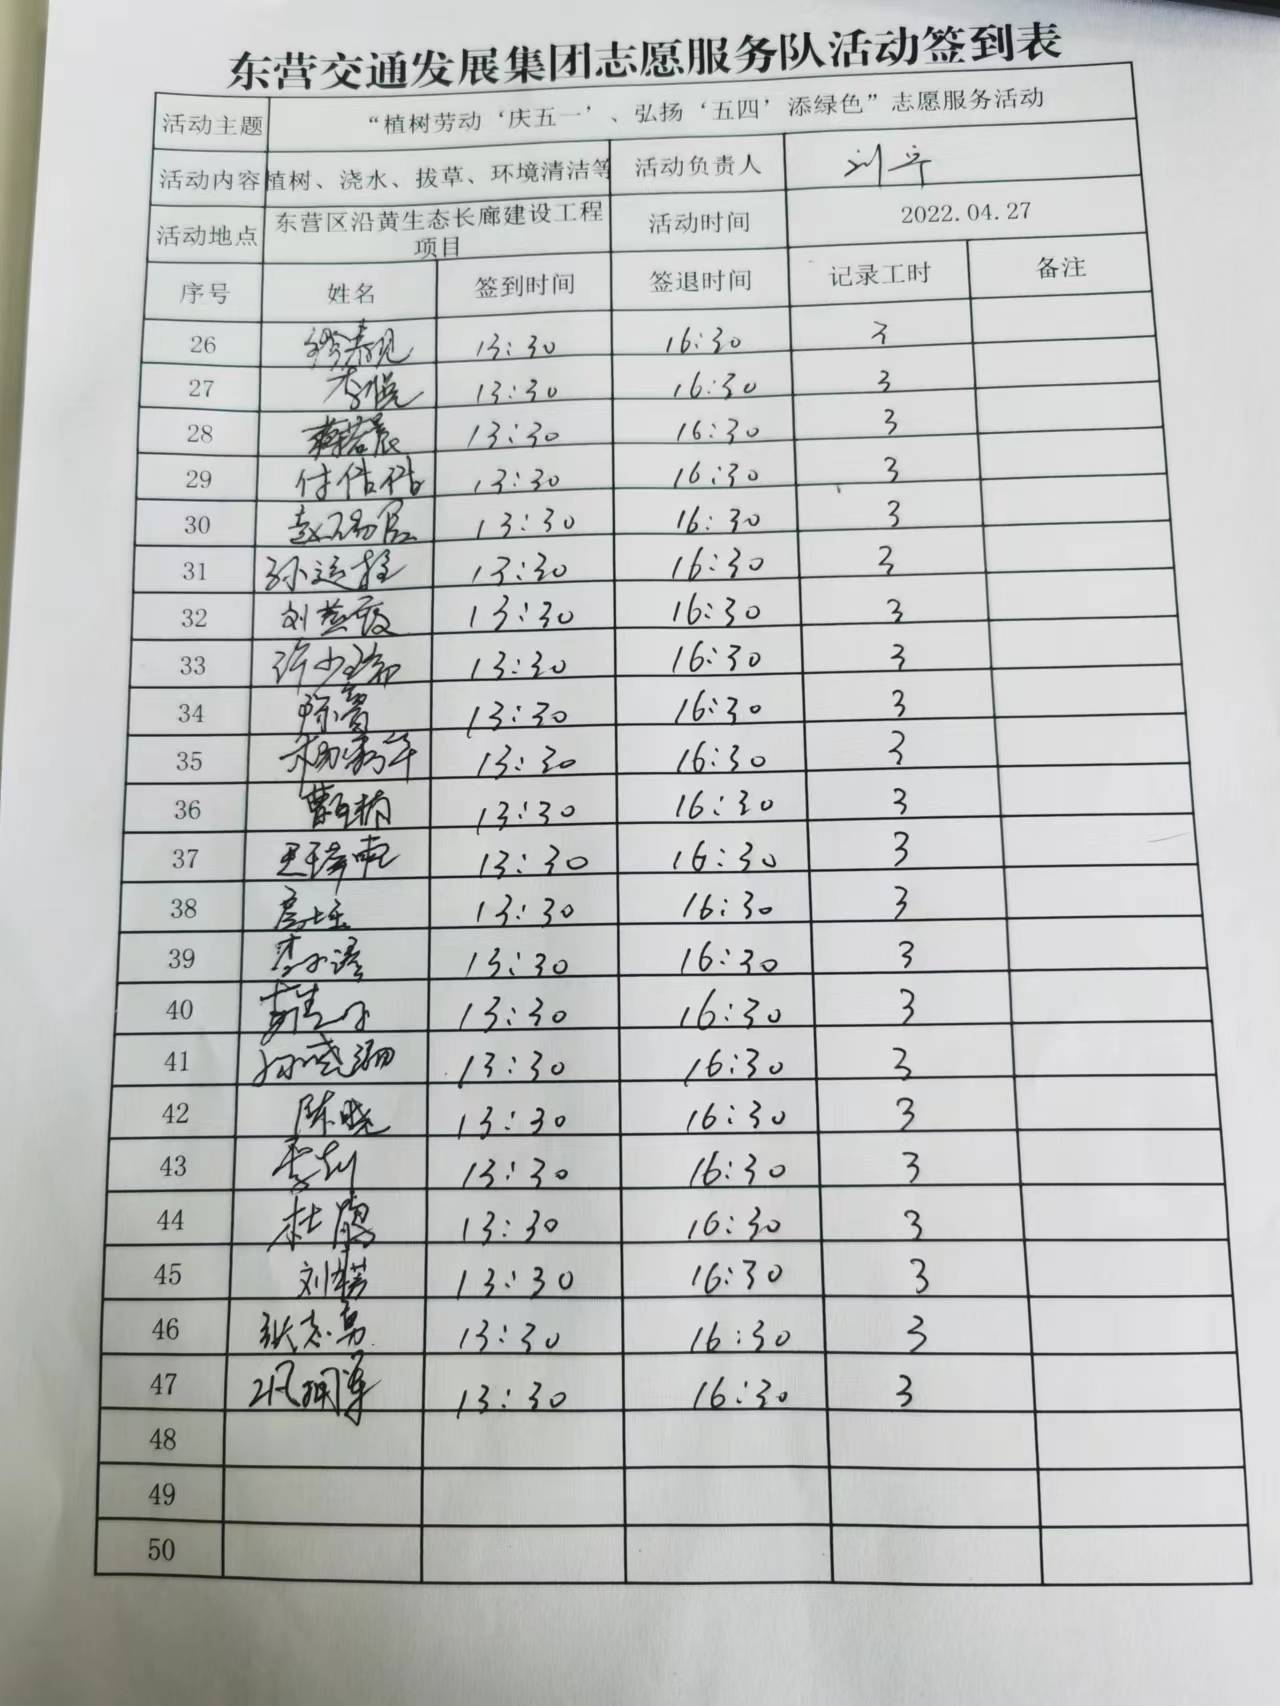 东营交通发展集团志愿服务队活动签到表
活动主题 “植树劳动‘庆五一’、弘扬‘五四’添绿色”志愿服务活动
活动内容 植树、浇水、拔草、环境清洁等 活动负责人
活动地点 东营区沿黄生态长廊建设工程项目 活动时间 2022.04.27
序号 姓名 签到时间 签退时间 记录工时 备注
26 13:30 16:30 3
27 13:30 16:30 3
28 13:30 16:30 3
29 付偕偕 13:30 16:30 3
30 13:30 16:30 3
31 13:30 16:30 3
32 刘燕霞 13:30 16:30 3
33 13:30 16:30 3
34 13:30 16:30 3
35 13:30 16:30 3
36 13:30 16:30 3
37 13:30 16:30 3
38 13:30 16:30 3
39 13:30 16:30 3
40 13:30 16:30 3
41 13:30 16:30 3
42 陈晓 13:30 16:30 3
43 13:30 16:30 3
44 杜鹃 13:30 16:30 3
45 13:30 16:30 3
46 张志勇 13:30 16:30 3
47 13:30 16:30 3
48
49
50